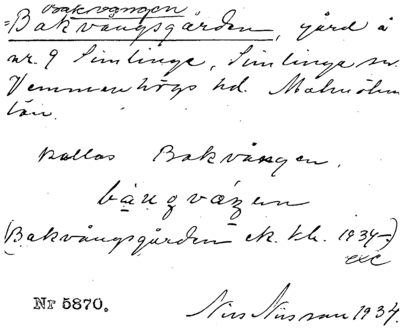 Bakvången
=Bakvångsgården, gård å
nr. 9 Simlinge, Simlinge sn.
Vemmenhögs hd. Malmöhus
län.
kallas Bakvången.
(Bakvångsgården ek. kh. 1934-)
exc
Nr 5870.
Nils Nilsson 1934.